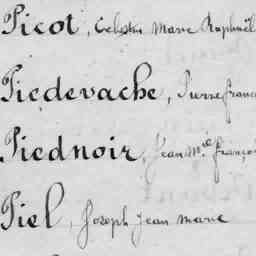 Picot, Célestin Marie Raphaël
Piedevache, Pierre Franc
Piednoir, Jean Mie françoi
Piel, Joseph Jean Marie